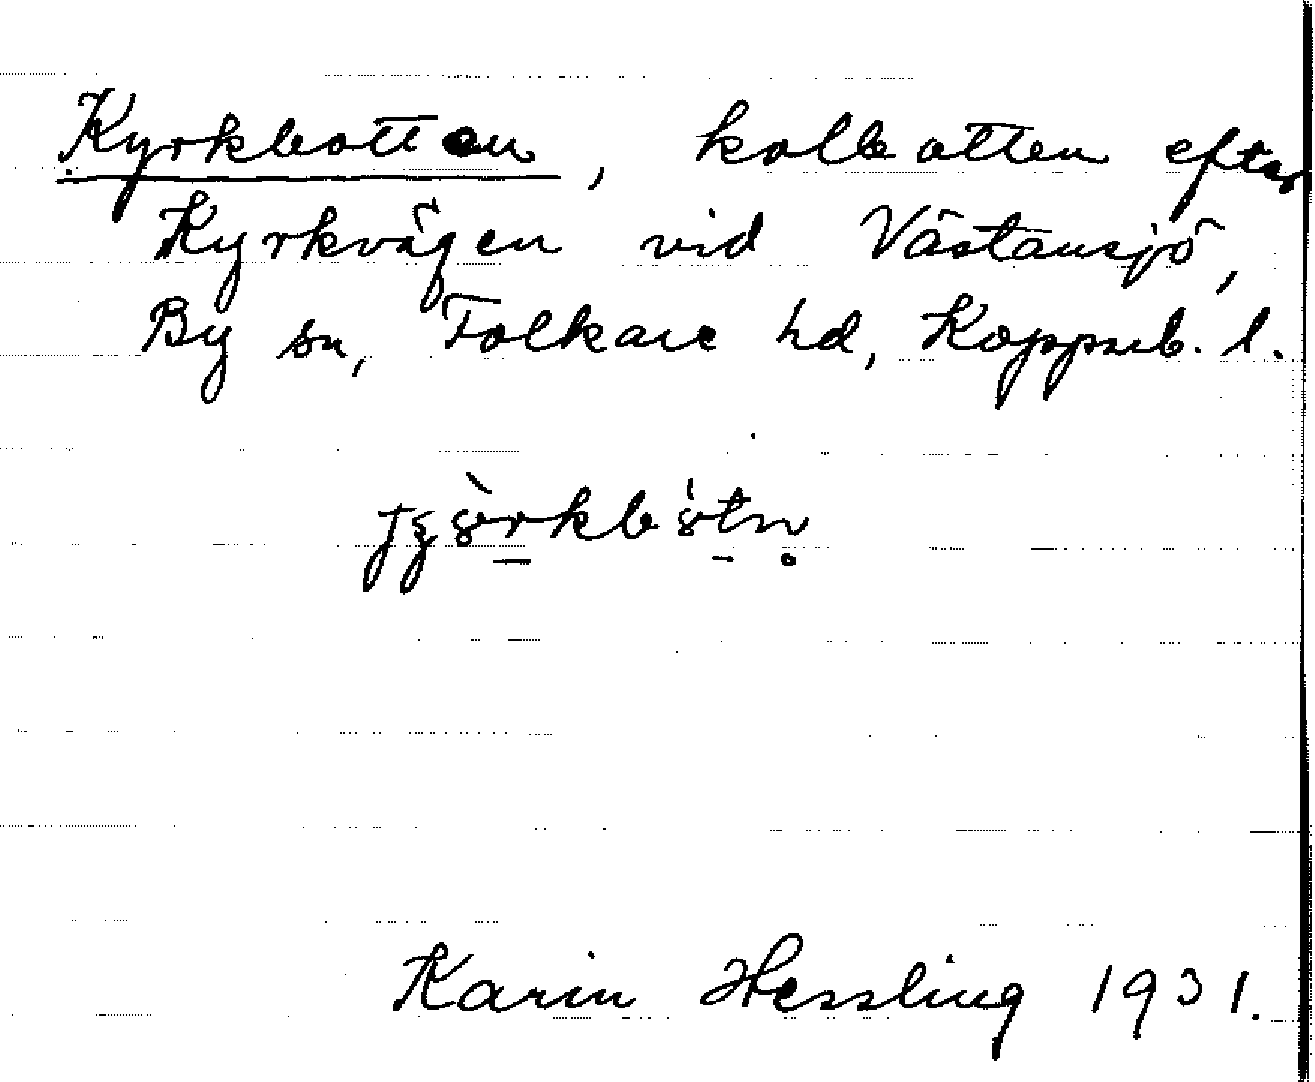 Kyrkbotten, kolbotten efter
Kyrkvägen vid Västansjö,
By sn, Folkare hd, Kopparb. l.
Karin Hessling 1931.